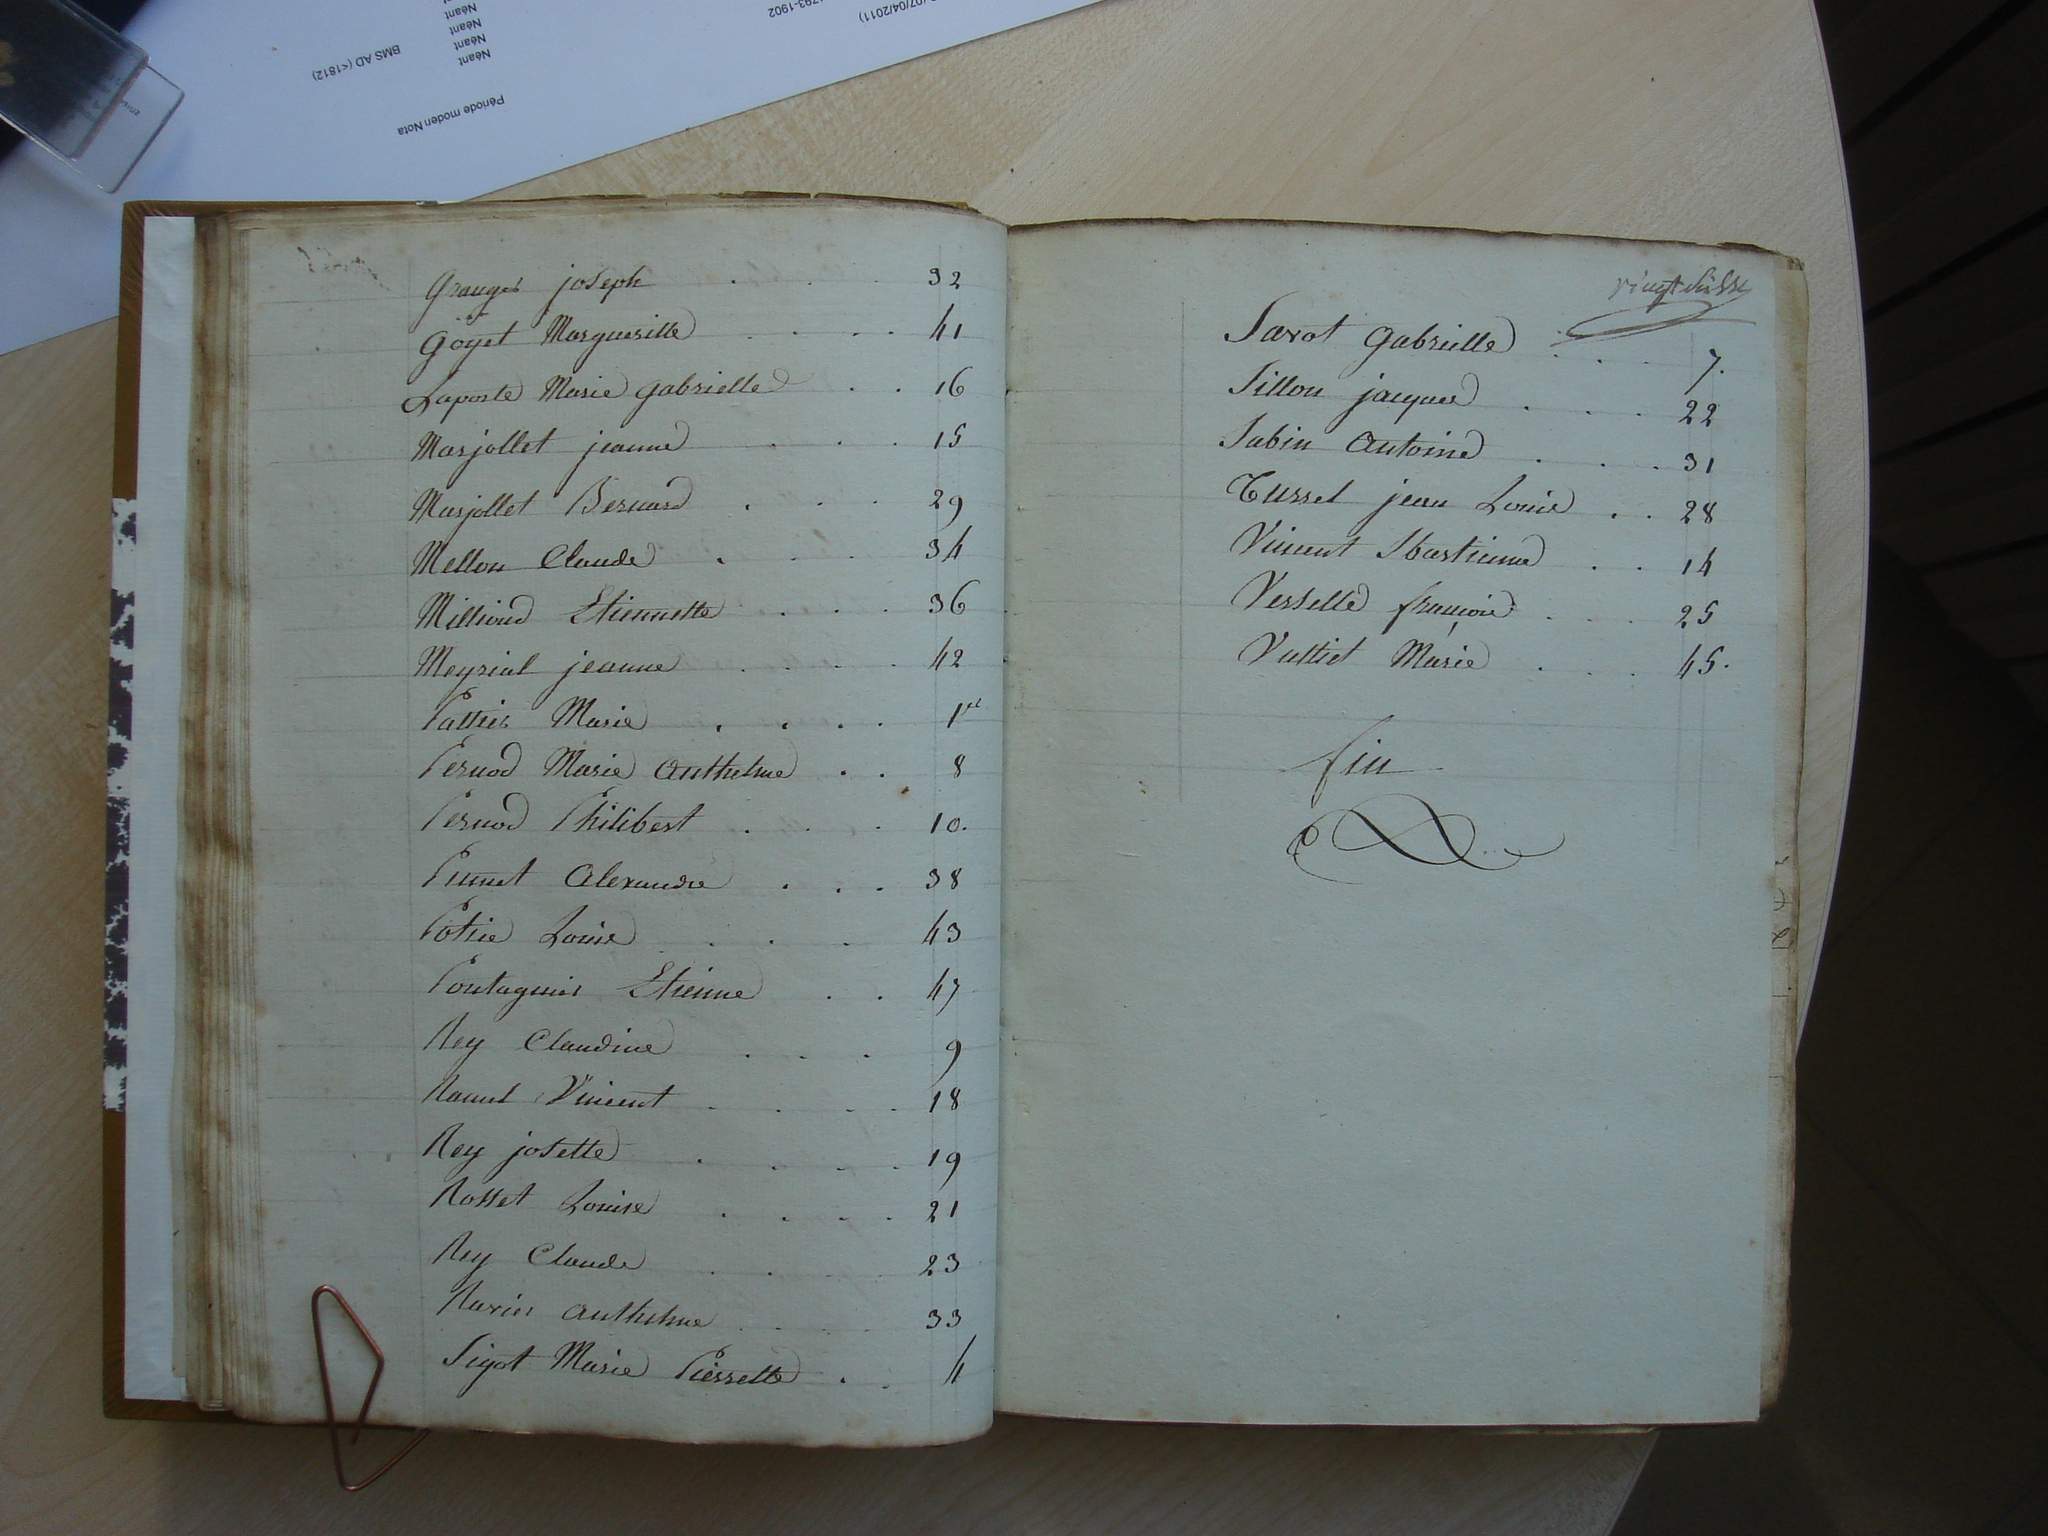 07/04/2011)
1793-1902
Néant
Néant
Néant
BMS AD (<1812)
Période moden Nota
Granger joseph . . . 32
Goyet Margueritte . . . 41
Laporte Marie gabrielle . . 16
Marjollet jeanne . . . 15
Marjollet Bernard . . . 29
Mellon Claude . . . 34
Milliond Etiennette . . . 36
Meyrial jeanne . . . 42
Pattier Marie . . . . 1er
Pernod Marie Anthelme . . 8
Pernod Philibert . . . 10.
Pinnet Alexandre . . . 38
Potie Louise . . . 43
Pontagnier Etienne . . 47
Rey Claudine . . . 9
Vincent . . . . 18
Rey josette . . . . 19
Rosset Louise . . . . 21
Rey Claude . . . 23
Ravier Anthelme . . . 33
Sigot Marie Pierrette . . 4
vingt
Savot Gabrielle . . . 7.
Sillon jacques . . . 22
Sabin Antoine . . . 31
Tusset jean Louis . . 28
Vincent Sbastienne . . 14
Verselle françois . . . 25
Vuttiet Marie . . . 45.
fin